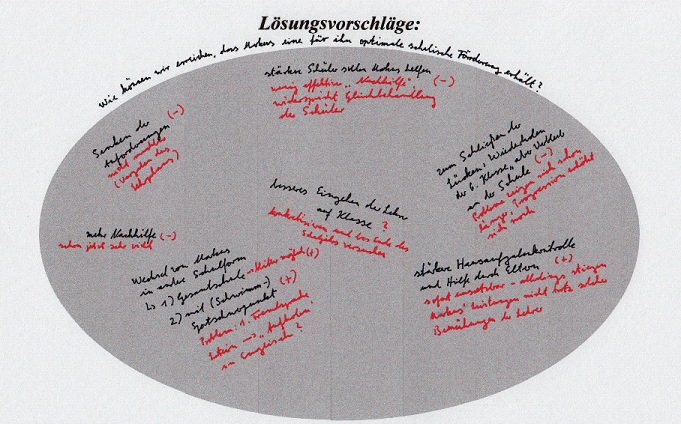 Lösungsvorschläge:
Wie können wir erreichen, dass Markus eine für ihn optimale schulische Förderung erhält?
stärkere Schüler sollen Markus helfen (-)
wenig effektive „Nachhilfe“
widerspricht Gleichbehandlung
der Schüler
Senken der
Anforderungen (-)
nicht machbar
(Vorgaben des
Lehrplans)
zum Schließen der
Lücken, Wiederholen
der 6. Klasse, aber Verbleib
an der Schule (-)
Probleme zeigen sich schon
länger, Progression erhöht
sich noch
besseres Eingehen der Lehrer
auf Klasse ?
konkretisieren und bis Ende des
Schuljahrs versuchen
mehr Nachhilfe (-)
schon jetzt sehr viel
Wechsel von Markus
in andere Schulform
1) Gesamtschule
2) mit (Schwimm-) (+)
Sportschwerpunkt
Problem: 1. Fremdsprache
Latein → „Aufholen“
in Englisch?
stärkere Hausaufgabenkontrolle
und Hilfe durch Eltern (+)
sofort einsetzbar - allerdings stiegen
Markus' Leistungen nicht trotz solcher
Bemühungen der Lehrer